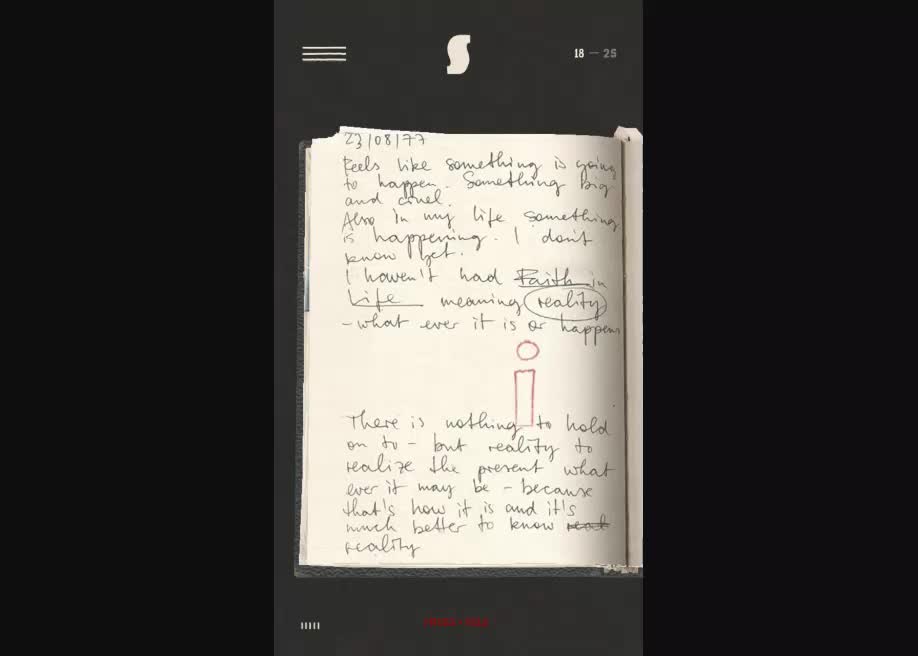 18 — 25
23/08/77
Feels like something is going
to happen. Something big
and cruel.
Also in my life something
is happening. I don't
know yet.
I haven't had Faith in
Life meaning reality
- what ever it is or happens
i
There is nothing to hold
on to - but reality to
realize the present what
ever it may be - because
that's how it is and it's
much better to know
reality